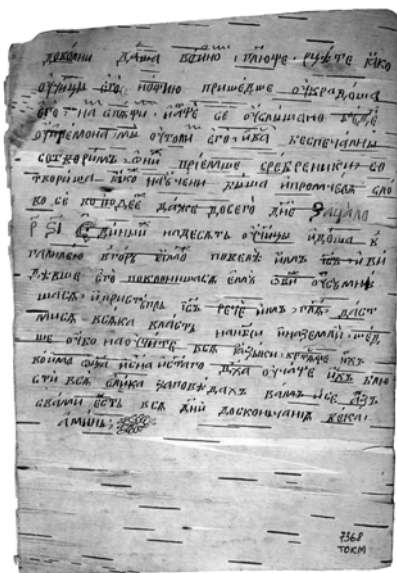 довѡлни даша воиномъ глюще рцыте яко
оучнцы его нощию пришедше оукрадоша
его намъ спящимъ и аще се оуслышано бꙋдетъ
оу игемона мы оутолимъ его и васъ беспечалны
сотворимъ ѻни же приемше сребреники со
твориша якоже научени быша и промчеся сло
во се во иꙋдеехъ даже до сего дне зачало
р҃ѕі единии же надесять оучнцы идоша в
галилею в горꙋ аможе повеле имъ іс҃ъ и ви
девше его поклонишася емꙋ ови же оусꙋмне
шася и пристꙋпль іс҃ъ рече имъ гл҃я даст
мися всяка власть на нб҃си и на земли шед
ше оубо наꙋчите вся языки крестяще ихъ
во имя ѻц҃а и сн҃а и ст҃аго дх҃а оучаще ихъ блю
сти вся елика заповедахъ вамъ и се азъ
с вами есмь вся дни до скончания века
аминь
7368
ТОКМ